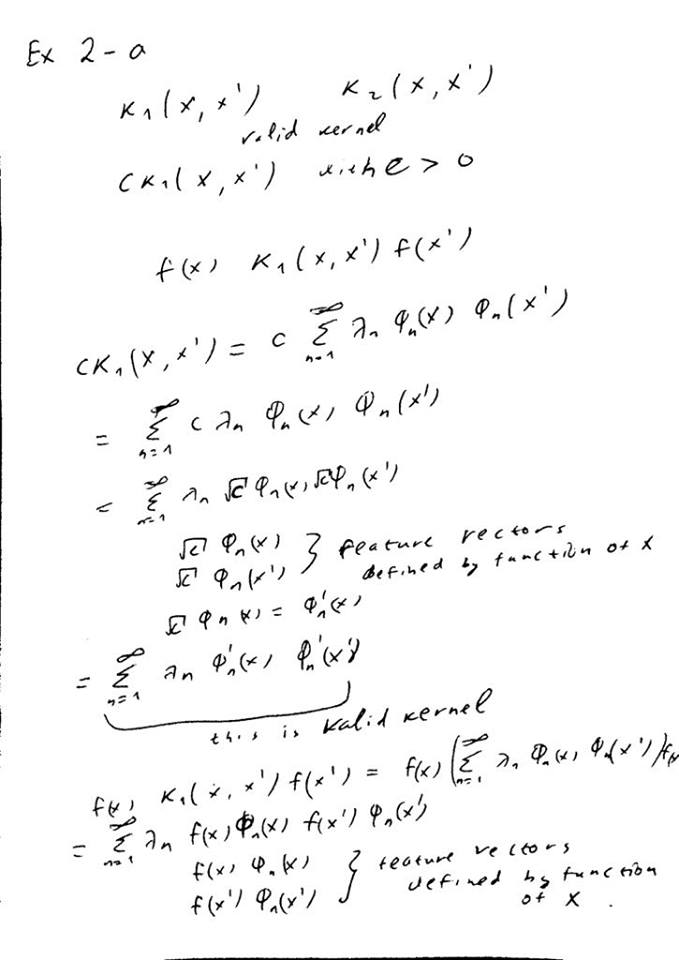 Ex 2 - a
K₁(x, x') K₂(x, x')
valid kernel
CK₁(x, x') with c > 0
f(x) K₁(x, x') f(x')
CK₁(x, x') = c ∑_{n=1}^{∞} λₙ φₙ(x) φₙ(x')
= ∑_{n=1}^{∞} c λₙ φₙ(x) φₙ(x')
= ∑_{n=1}^{∞} λₙ √c φₙ(x) √c φₙ(x')
√c φₙ(x) } feature vectors
√c φₙ(x') defined by function of x
√c φₙ(x) = φₙ'(x)
= ∑_{n=1}^{∞} λₙ φₙ'(x) φₙ'(x')
this is valid kernel
f(x) K₁(x, x') f(x') = f(x) (∑_{n=1}^{∞} λₙ φₙ(x) φₙ(x')) f(x
= ∑_{n=1}^{∞} λₙ f(x) φₙ(x) f(x') φₙ(x')
f(x) φₙ(x) } feature vectors
f(x') φₙ(x') defined by function
of x .